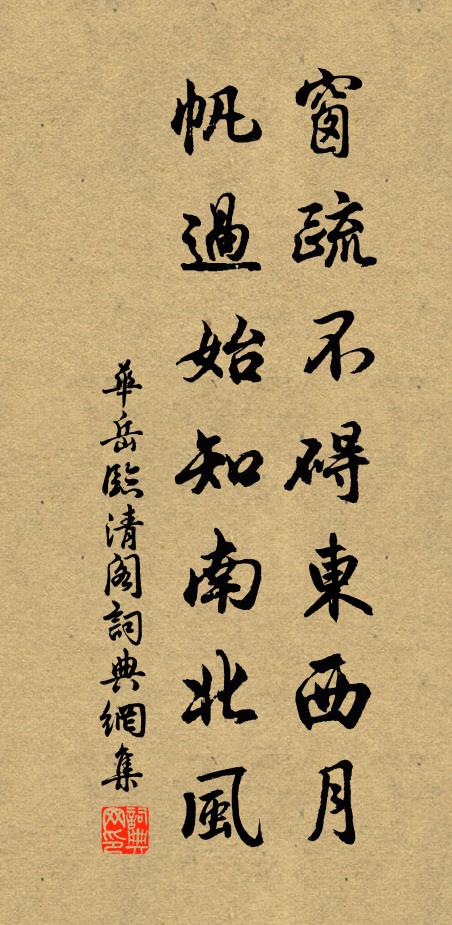 窗疏不碍東西月
帆過始知南北風
華岳臨清阁詞典網集
詞典網印